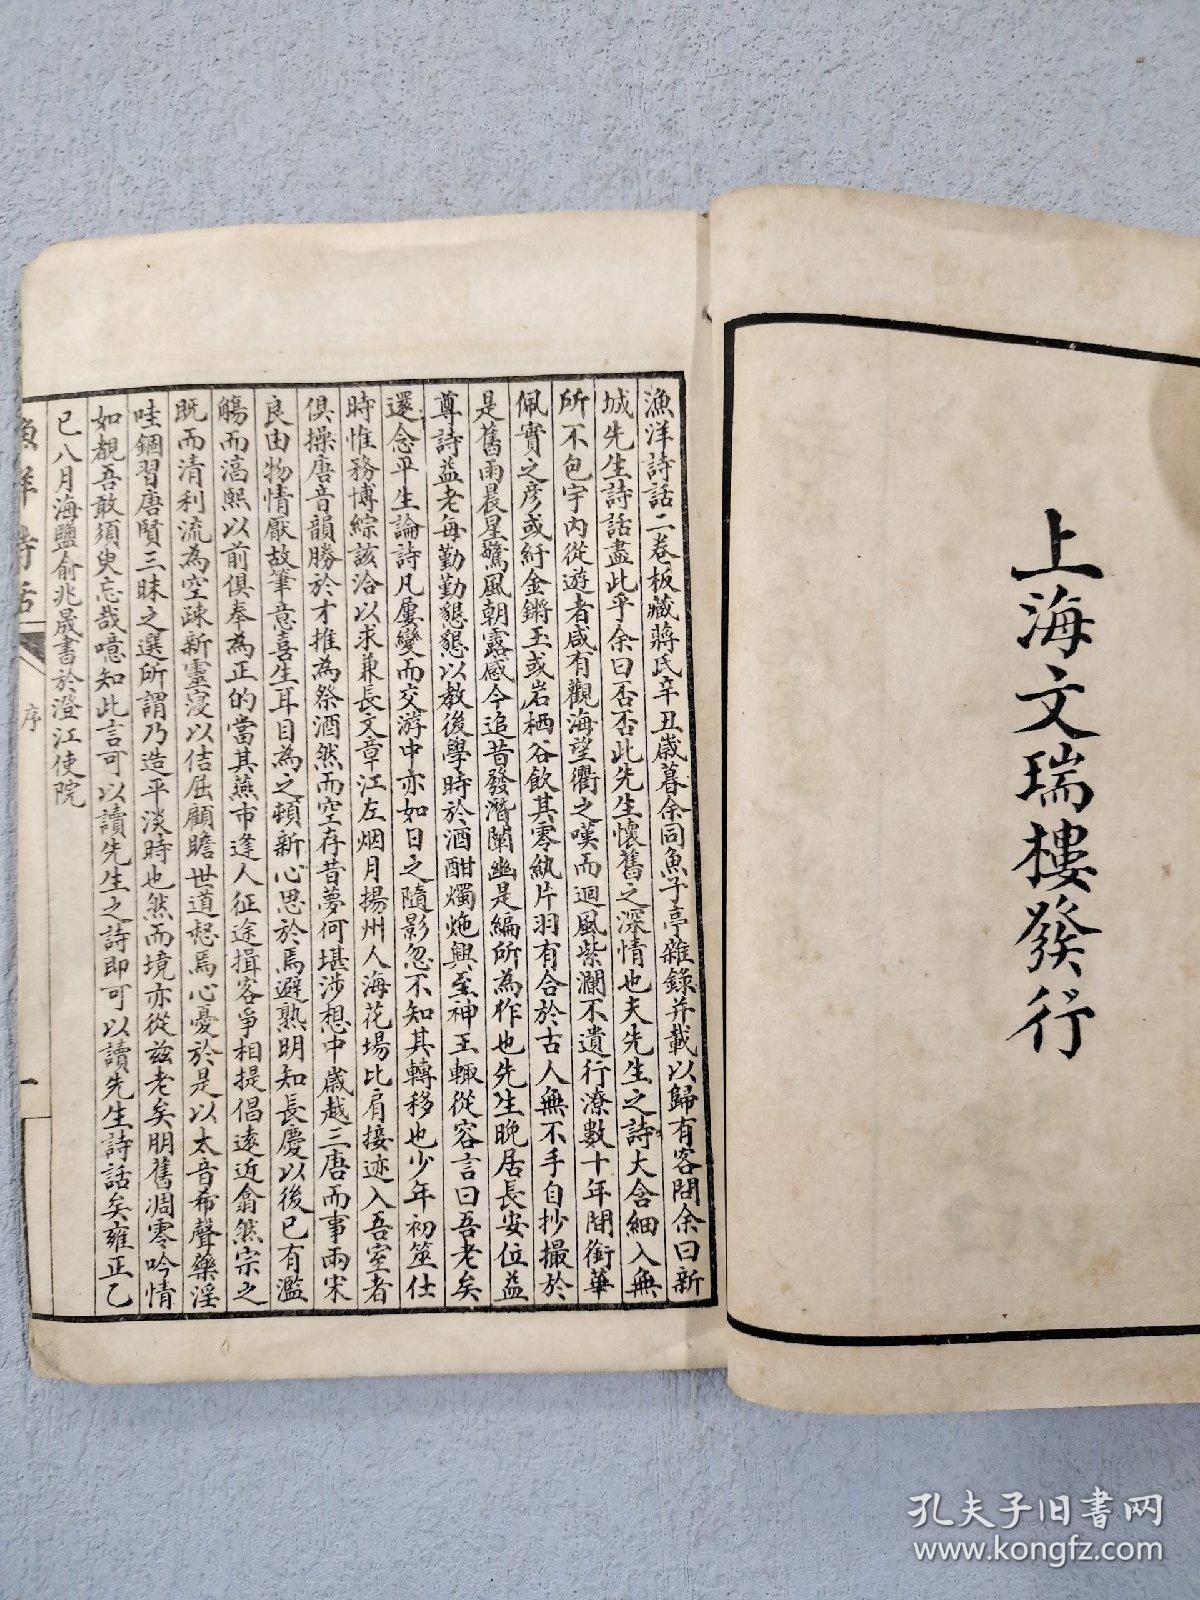 上海文瑞樓發行
漁洋詩話二卷板藏蔣氏辛丑歲暮余同魚子亭雜錄并載以歸有客問余曰新
城先生詩話盡此乎余曰否否此先生懷舊之深情也夫先生之詩大含細入無
所不包宇內從遊者咸有觀海望衢之嘆而迴風紫瀾不遺行潦數十年間銜華
佩實之彥或紆金鏘玉或岩栖谷飲其零紈片羽有合於古人無不手自抄撮於
是舊雨晨星驚風朝露感今追昔發潛闡幽是編所為作也先生晚居長安位益
尊詩益老每勤勤懇懇以教後學時於酒酣燭灺興至神王輒從容言曰吾老矣
還念平生論詩凡屢變而交游中亦如日之隨影忽不知其轉移也少年初筮仕
時惟務博綜該洽以求兼長文章江左烟月揚州人海花場比肩接迹入吾室者
俱操唐音韻勝於才推為祭酒然而空存昔夢何堪涉想中歲越三唐而事兩宋
良由物情厭故筆意喜生耳目為之頓新心思於焉避熟明知長慶以後已有濫
觴而淳熙以前俱奉為正的當其燕市逢人征途揖客爭相提倡遠近翕然宗之
既而清利流為空疎新靈寖以佶屈顧瞻世道惄焉心憂於是以太音希聲藥淫
哇錮習唐賢三昧之選所謂乃造平淡時也然而境亦從茲老矣朋舊凋零吟情
如覩吾敢須臾忘哉噫知此言可以讀先生之詩即可以讀先生詩話矣雍正乙
巳八月海鹽俞兆晟書於澄江使院
漁洋詩話
序
一
孔夫子旧书网
www.kongfz.com